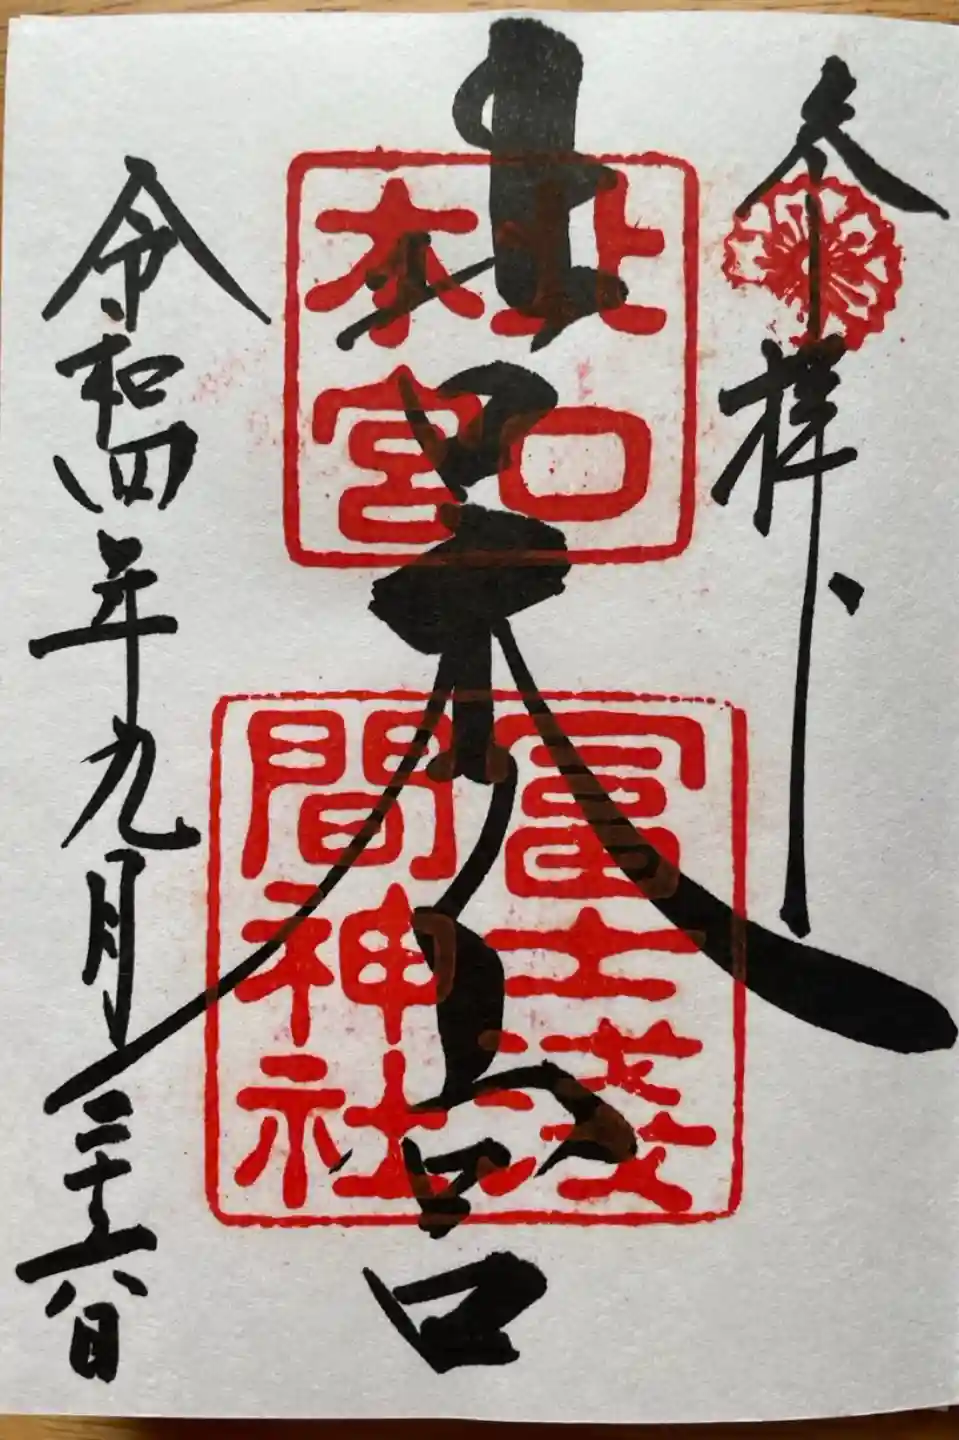 参拝
北口本宮
北口
本宮
冨士浅
間神社
令和四年九月二十六日